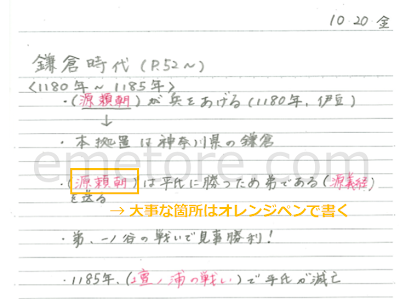 10 20 金
鎌倉時代 (P.52～)
<1180年～1185年>
・(源頼朝)が兵をあげる(1180年、伊豆)
↓
・本拠置は神奈川県の鎌倉
emetore.com
・(源頼朝)は平氏に勝つため弟である(源義経)
を送る
→ 大事な箇所はオレンジペンで書く
・弟、一ノ谷の戦いで見事勝利!
・1185年、(壇ノ浦の戦い)で平氏が滅亡